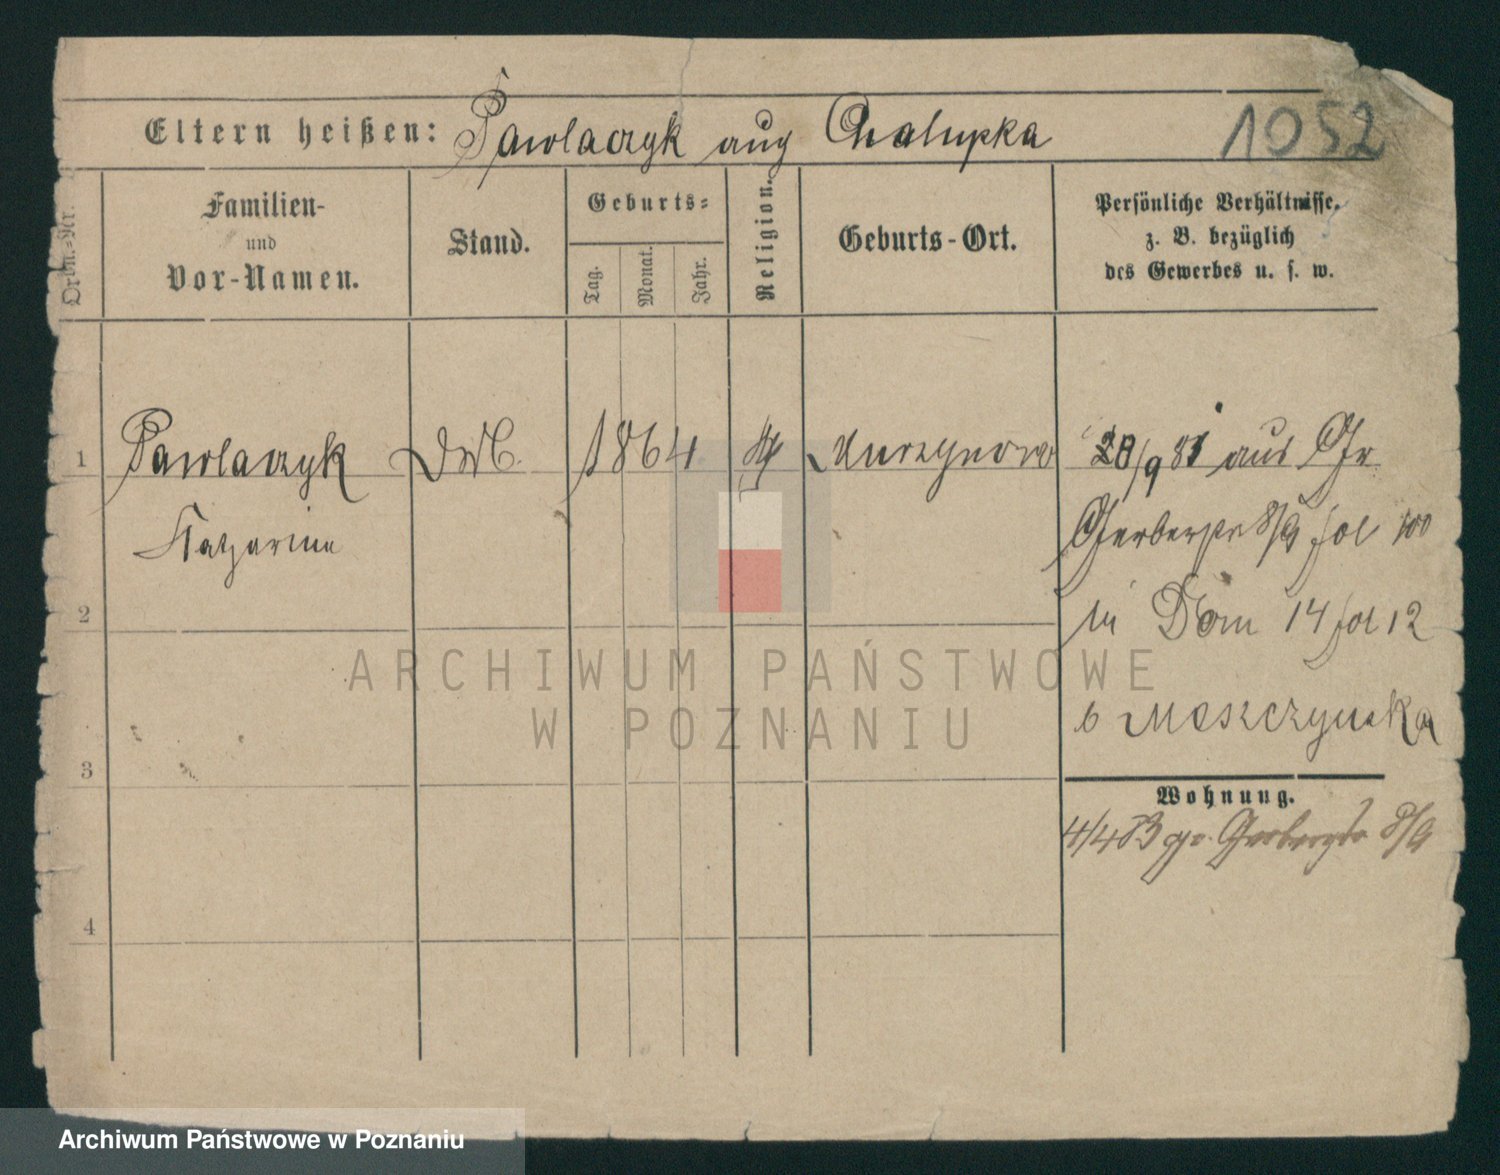 Eltern heißen: Pawlaczyk aug Chalupka
1052
Ordn.=Nr.
Familien-
und
Vor-Namen.
Stand.
Geburts=
Tag.
Monat.
Jahr.
Religion.
Geburts-Ort.
Persönliche Verhältnisse,
z. B. bezüglich
des Gewerbes u. s. w.
1 Pawlaczyk 1864 Murzynowo 28/9 81 aus Gr
Katharina
Gerberstr 8/9 fol 100
2
in Dom 14 fol 12
b Moszczynska
3
Wohnung.
4/4 83 gr. Gerberstr 8/9
4
ARCHIWUM PAŃSTWOWE
W POZNANIU
Archiwum Państwowe w Poznaniu